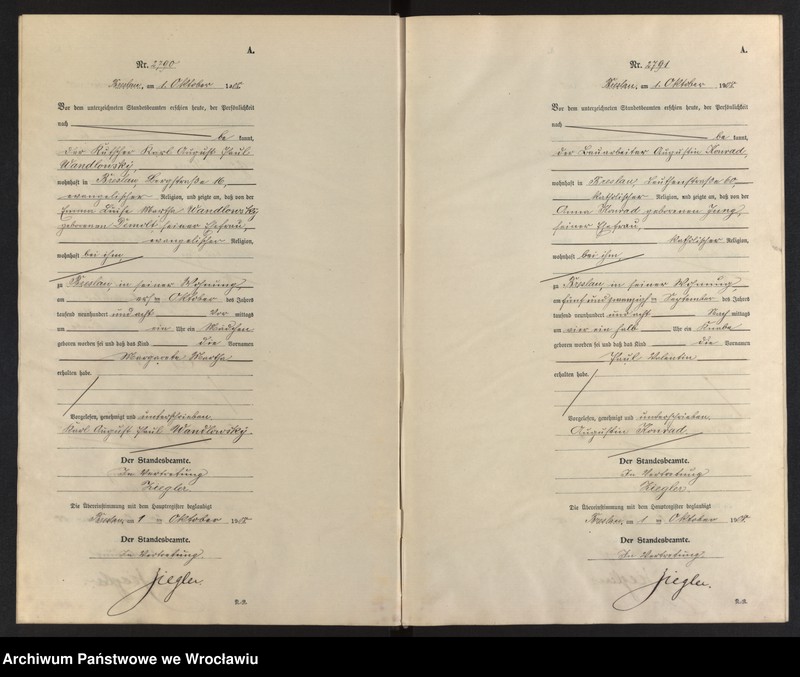 A.
Nr. 2790
Breslau, am 1. Oktober 1908
Vor dem unterzeichneten Standesbeamten erschien heute, der Persönlichkeit
nach
be kannt,
der Kutscher Karl August Paul
Wandlowsky,
wohnhaft in Breslau, Bergstraße 16,
evangelischer Religion, und zeigte an, daß von der
Emma Luise Martha Wandlowsky
geborenen seiner Ehefrau,
evangelischer Religion,
wohnhaft bei ihm,
zu Breslau, in seiner Wohnung,
am ersten Oktober des Jahres
tausend neunhundert und acht Vor mittags
um ein Uhr ein Mädchen
geboren worden sei und daß das Kind die Vornamen
Margarete Martha
erhalten habe.
Vorgelesen, genehmigt und unterschrieben.
Karl August Paul Wandlowsky.
Der Standesbeamte.
In Vertretung
Ziegler.
Die Übereinstimmung mit dem Hauptregister beglaubigt
Breslau, am 1 ten Oktober 1908.
Der Standesbeamte.
In Vertretung.
Ziegler.
A.
Nr. 2791
Breslau, am 1. Oktober 1908
Vor dem unterzeichneten Standesbeamten erschien heute, der Persönlichkeit
nach
be kannt,
der Bauarbeiter Augustin Konrad,
wohnhaft in Breslau, Leuthenstraße 60,
katholischer Religion, und zeigte an, daß von der
Anna Konrad geborenen Jung,
seiner Ehefrau,
katholischer Religion,
wohnhaft bei ihm,
zu Breslau, in seiner Wohnung,
am fünf und zwanzigsten September des Jahres
tausend neunhundert und acht Nach mittags
um vier ein halb Uhr ein Knabe
geboren worden sei und daß das Kind die Vornamen
Paul Valentin
erhalten habe.
Vorgelesen, genehmigt und unterschrieben.
Augustin Konrad.
Der Standesbeamte.
In Vertretung
Ziegler.
Die Übereinstimmung mit dem Hauptregister beglaubigt
Breslau, am 1 ten Oktober 1908.
Der Standesbeamte.
In Vertretung.
Ziegler.
Archiwum Państwowe we Wrocławiu